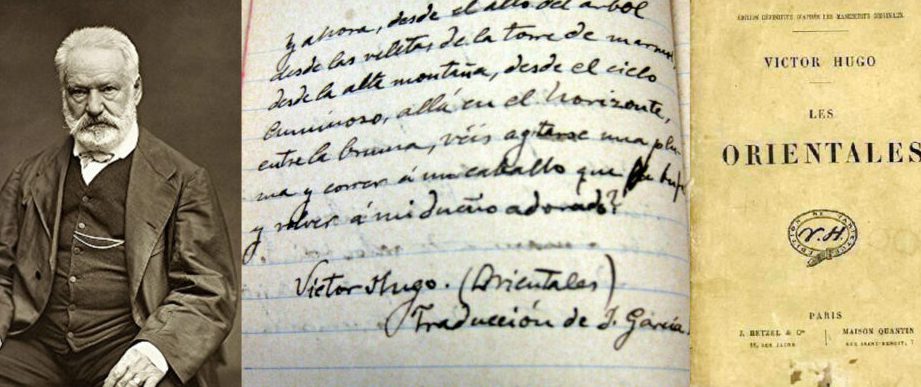 y ahora, desde el alto del arbol
desde las veletas de la torre de marmol,
desde la alta montaña, desde el cielo
luminoso, allá en el horizonte,
entre la bruma, véis agitarse una plu-
ma y correr á un caballo que
y volver á mi dueño adorado?
Victor Hugo. (Orientales)
Traducción de J. García.
ÉDITION DÉFINITIVE D'APRÈS LES MANUSCRITS ORIGINAUX
VICTOR HUGO
LES
ORIENTALES
V.H.
PARIS
J. HETZEL & Cie
18, RUE JACOB
MAISON QUANTIN
RUE SAINT-BENOIT, 7